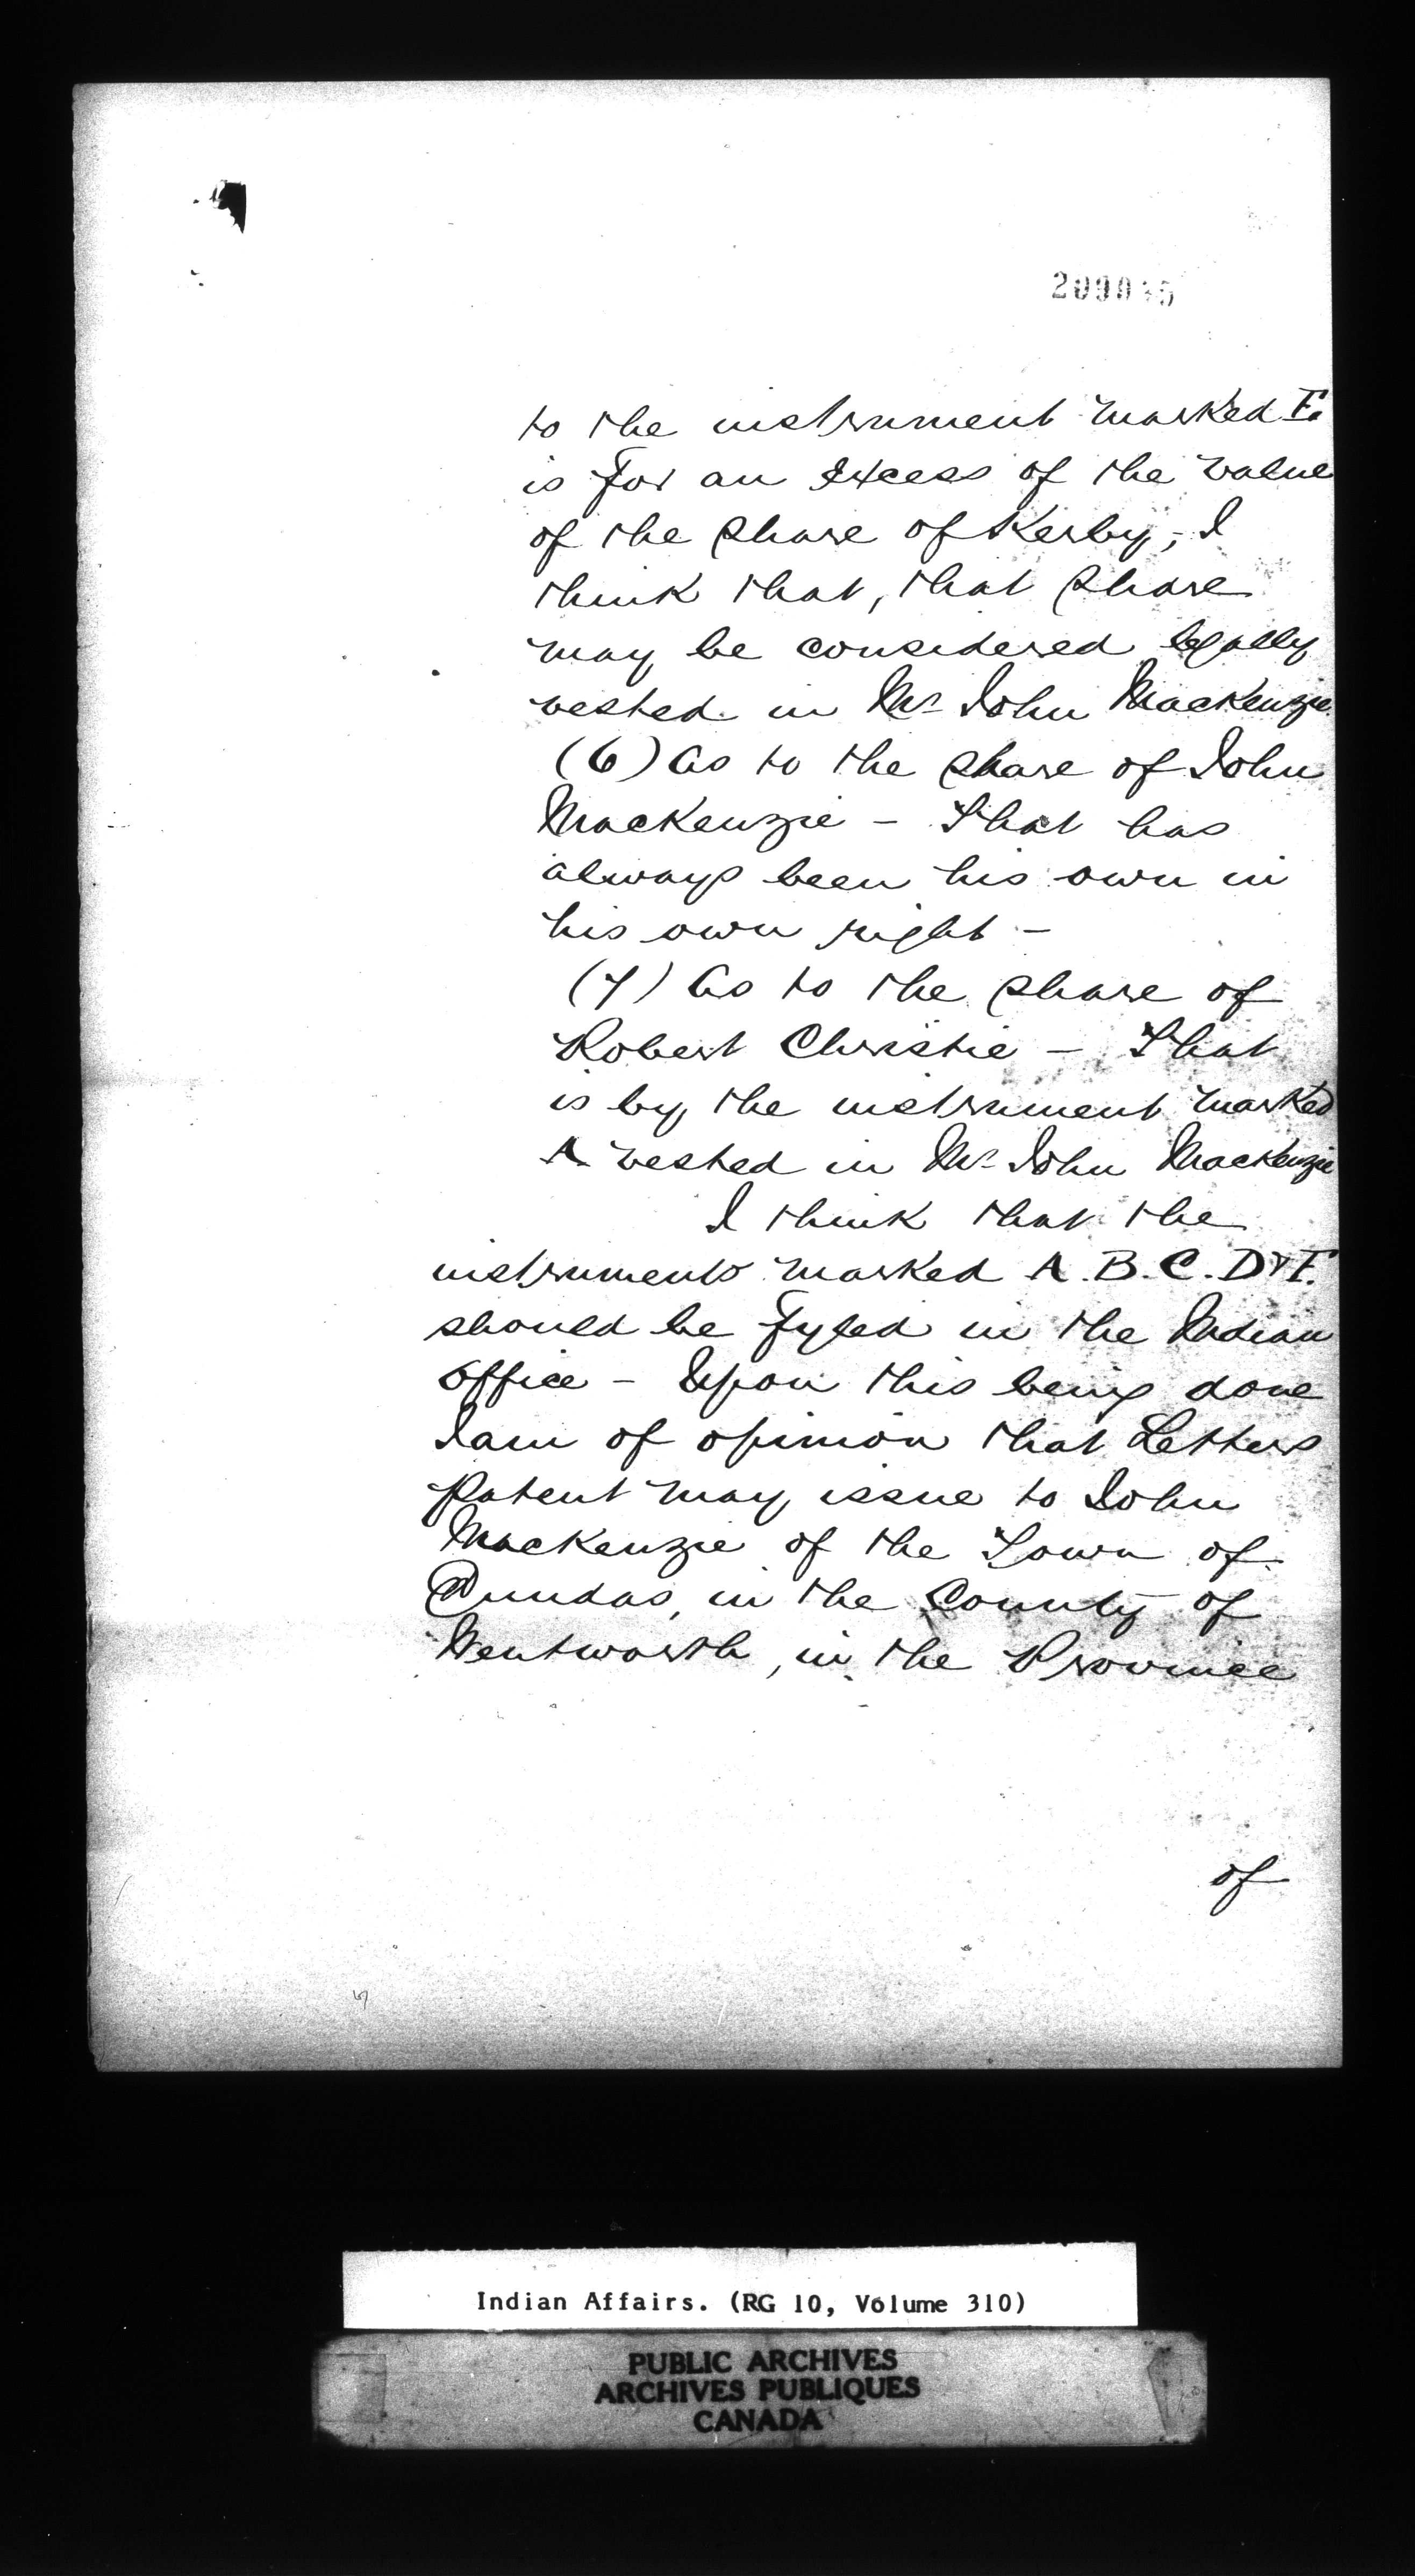 to the instrument marked F.
is for an excess of the value
of the share of Kerby, I
think that, that share
may be considered legally
vested in Mr John MacKenzie
(6) As to the share of John
MacKenzie – That has
always been his own in
his own right –
(7) As to the share of
Robert Christie – That
is by the instrument marked
A. vested in Mr John MacKenzie
I think that the
instruments marked A. B. C. D & F.
should be fyled in the Indian
Office – Upon this being done
I am of opinion that Letters
patent may issue to John
MacKenzie of the Town of
Dundas, in the County of
Wentworth, in the Province
of
Indian Affairs. (RG 10, Volume 310)
PUBLIC ARCHIVES
ARCHIVES PUBLIQUES
CANADA